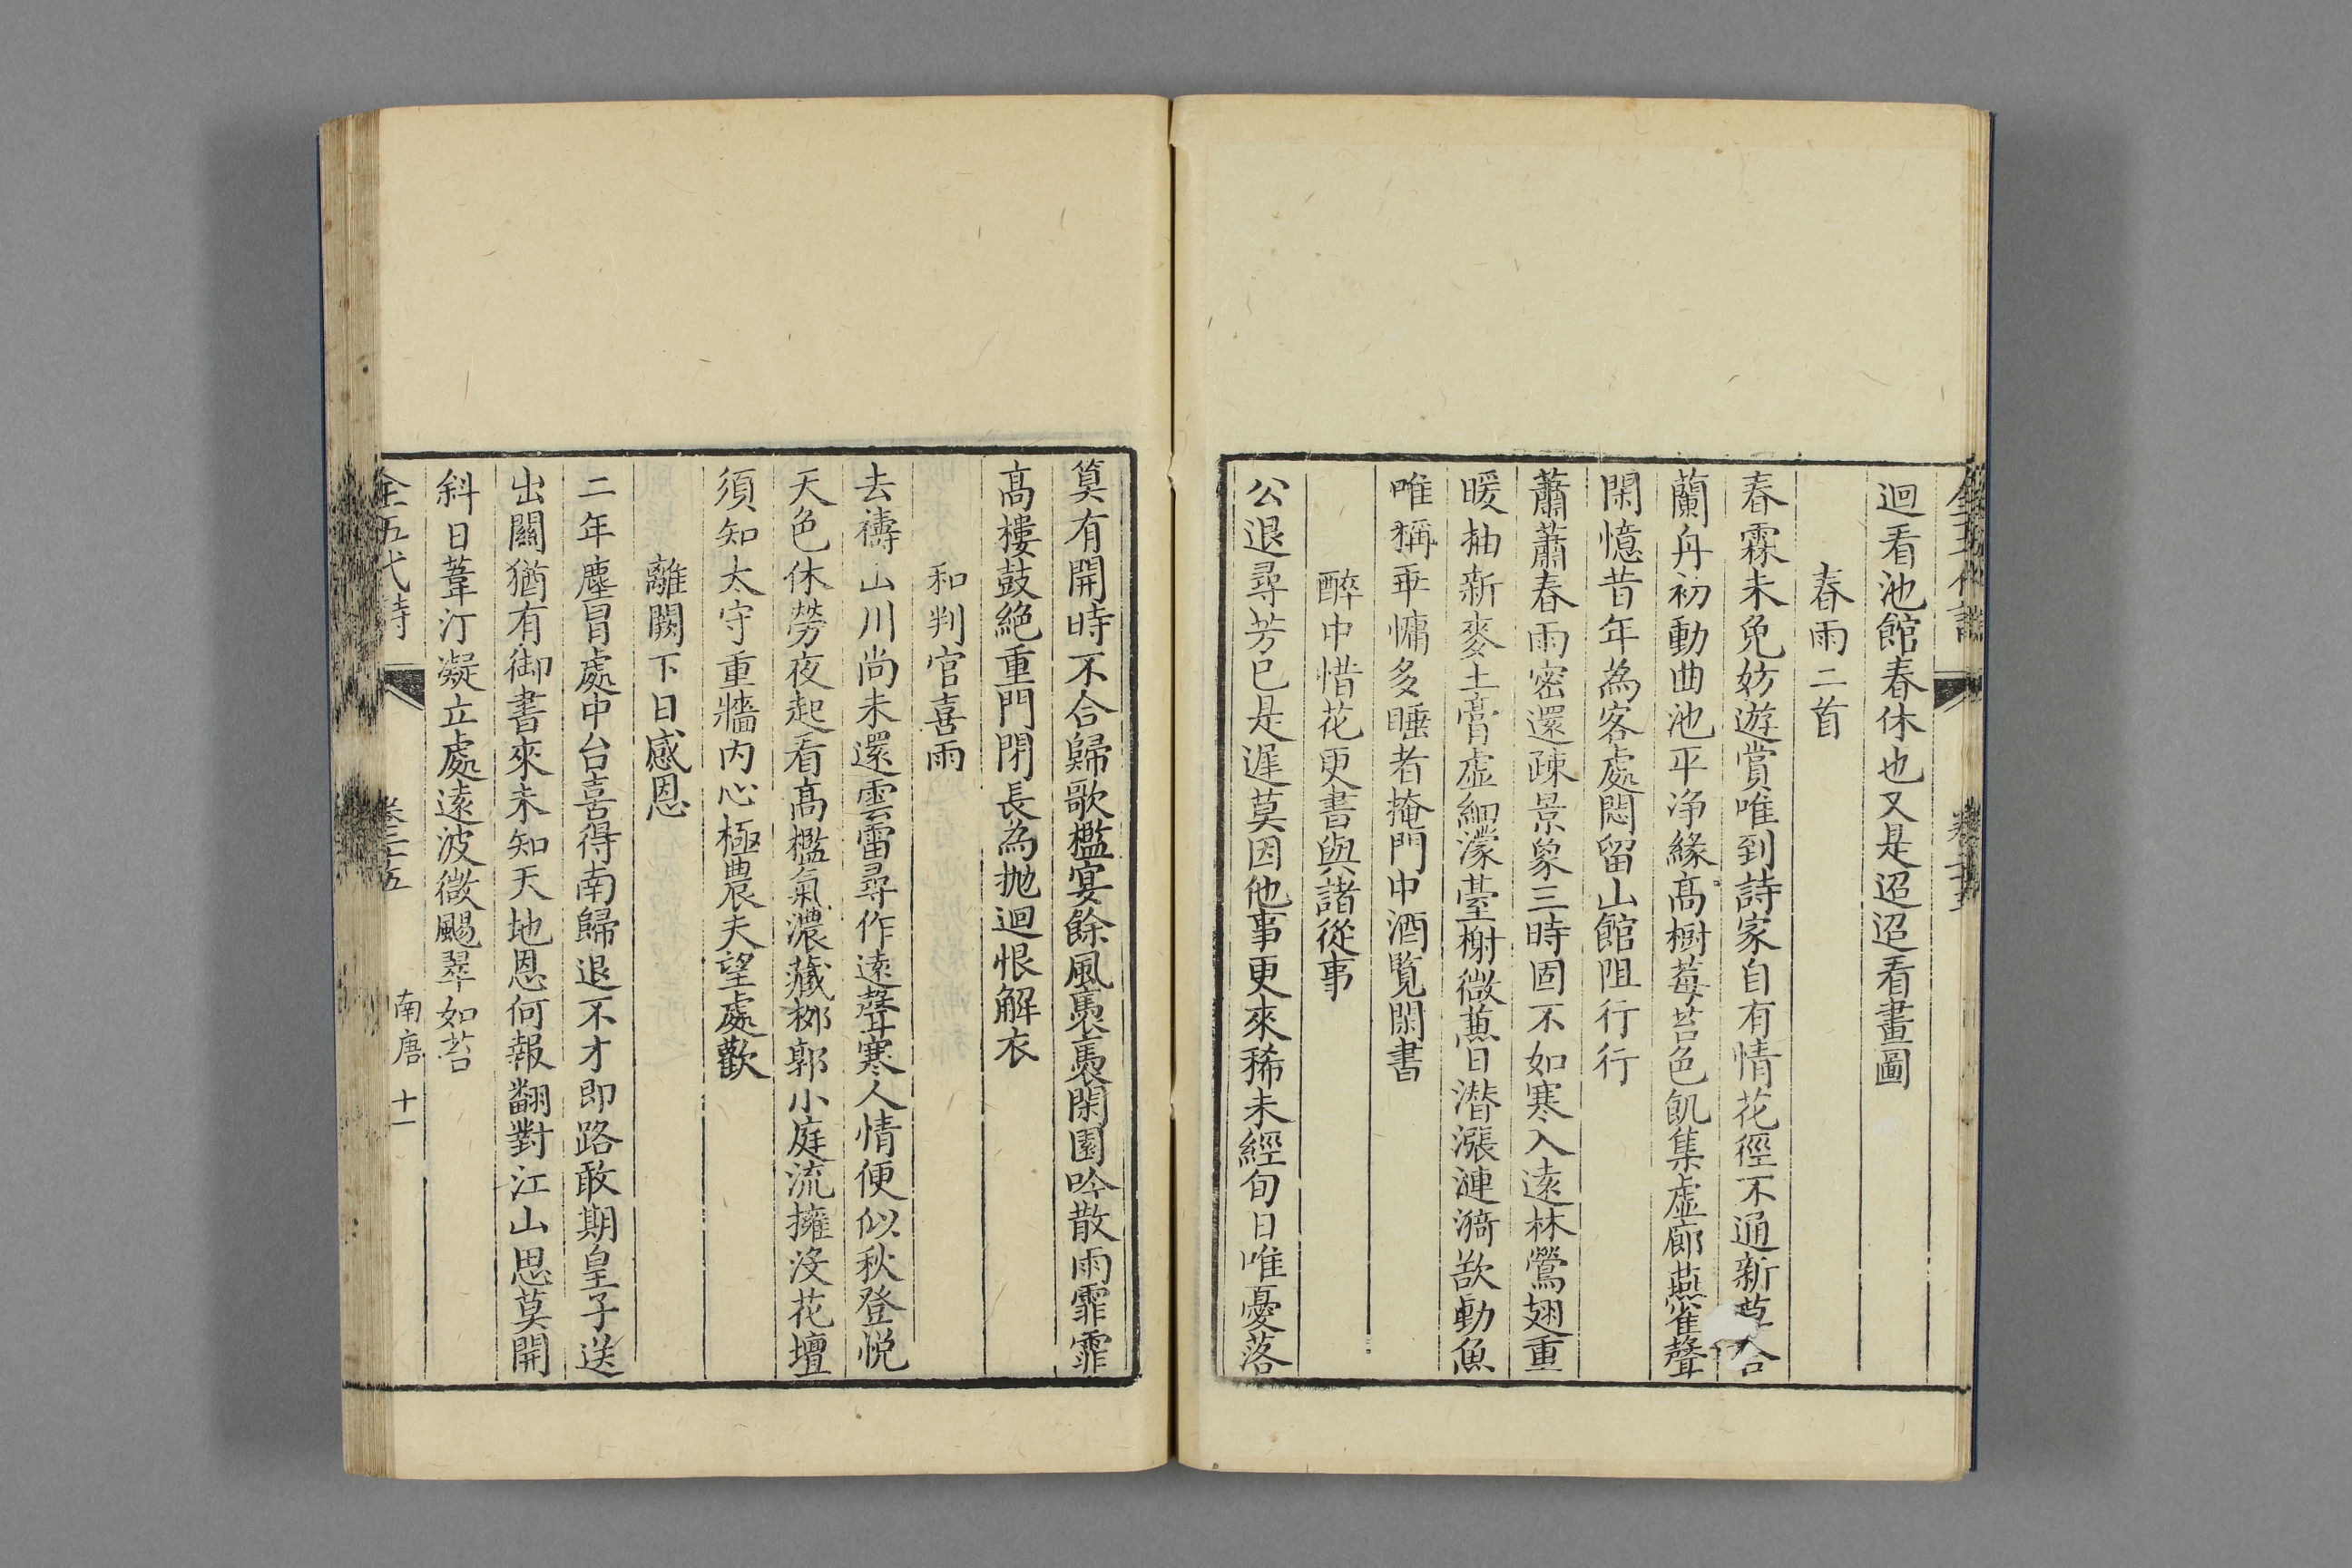 迴看池館春休也又是迢迢看畫圖
春雨二首
春霖未免妨遊賞唯到詩家自有情花徑不通新草合
蘭舟初動曲池平净緣高樹莓苔色飢集虛廊燕雀聲
閑憶昔年為客處悶留山館阻行行
蕭蕭春雨密還疎景象三時固不如寒入遠林鶯翅重
暖抽新麥土膏虛細濛䑓榭微蕪日潛漲漣漪欲動魚
唯稱乖慵多睡者掩門中酒覧閑書
醉中惜花更書與諸從事
公退尋芳已是遲莫因他事更來稀未經旬日唯憂落
筭有開時不合歸歌檻宴餘風裊裊閑園吟散雨霏霏
高樓鼓絕重門閉長為拋迴恨解衣
和判官喜雨
去禱山川尚未還雲雷尋作遠聲寒人情便似秋登悅
天色休勞夜起看高檻氣濃藏栁郭小庭流擁沒花壇
須知太守重牆内心極農夫望處歡
離闕下日感恩
二年塵冒處中台喜得南歸退不才即路敢期皇子送
出關猶有御書來未知天地恩何報翻對江山思莫開
斜日葦汀凝立處遠波微颺翠如苔
全五代詩 卷三十五 南唐 十一